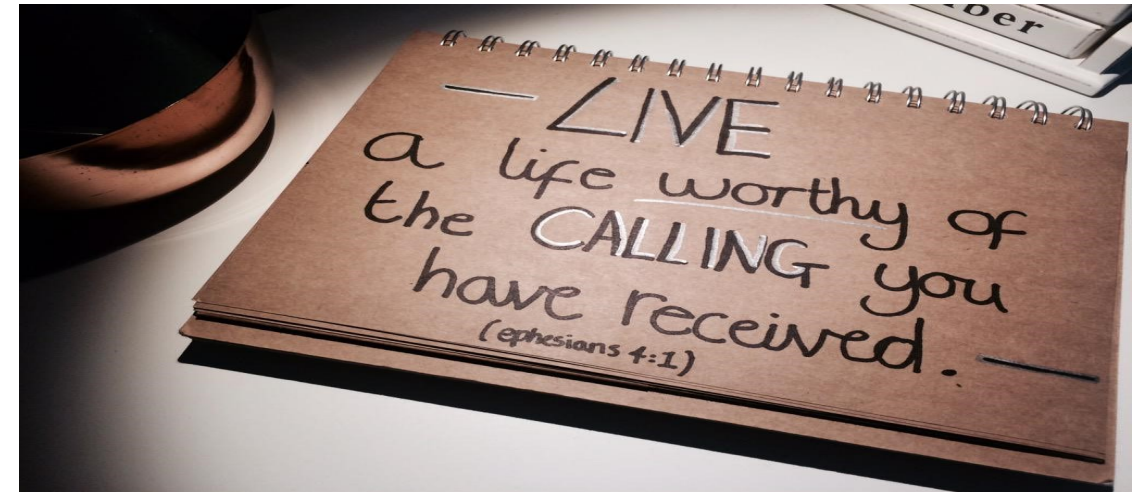 ber
— LIVE
a life worthy of
the CALLING you
have received. —
(ephesians 4:1)